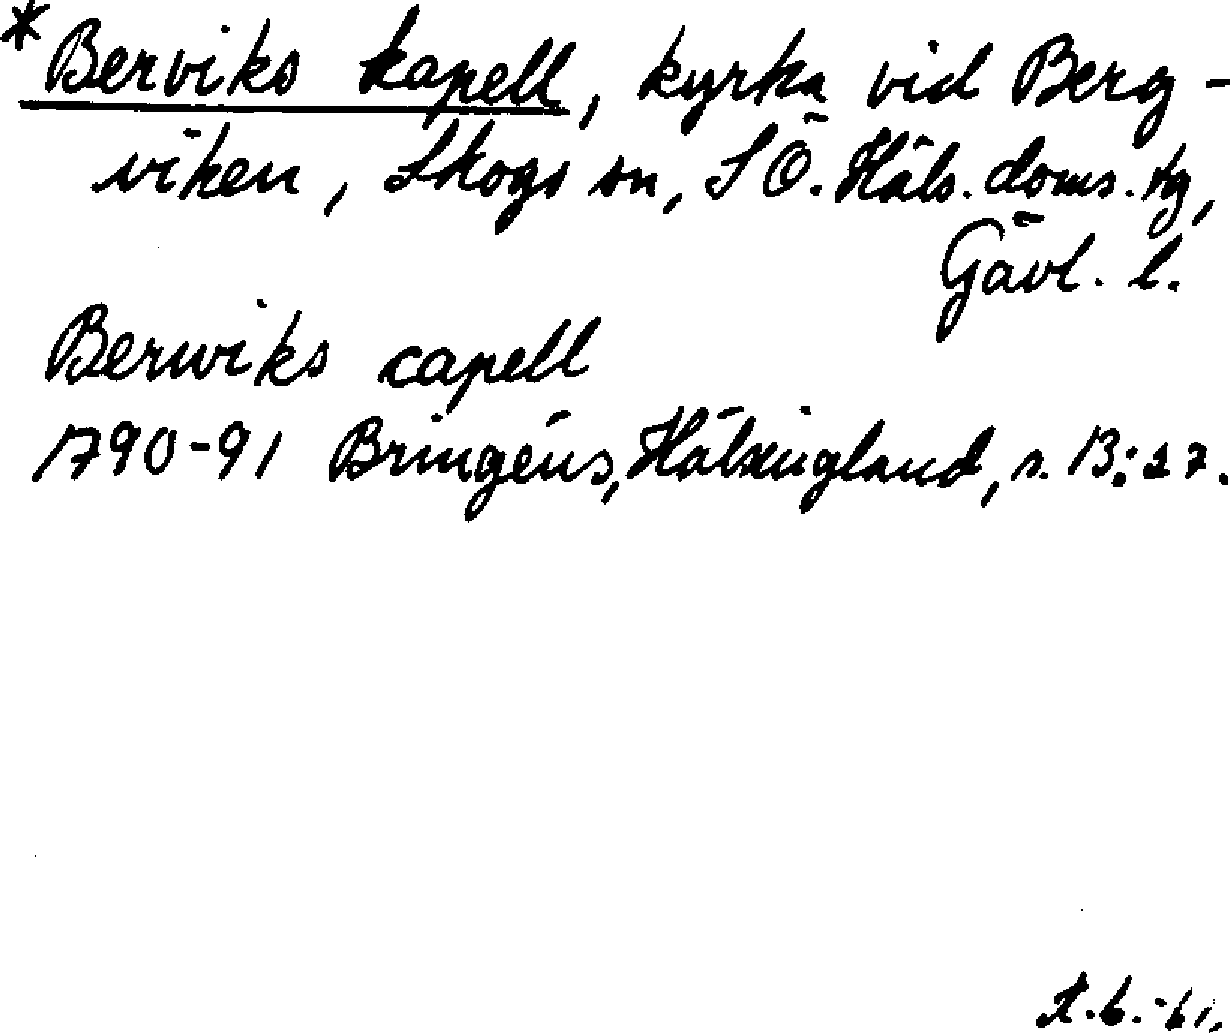 * Berviks kapell, kyrka vid Berg-
viken, Skogs sn, S Ö. Häls. doms. tg,
Gävl. l.
Berwiks capell
1790-91 Bringéus, Hälsingland, s. 13:27.